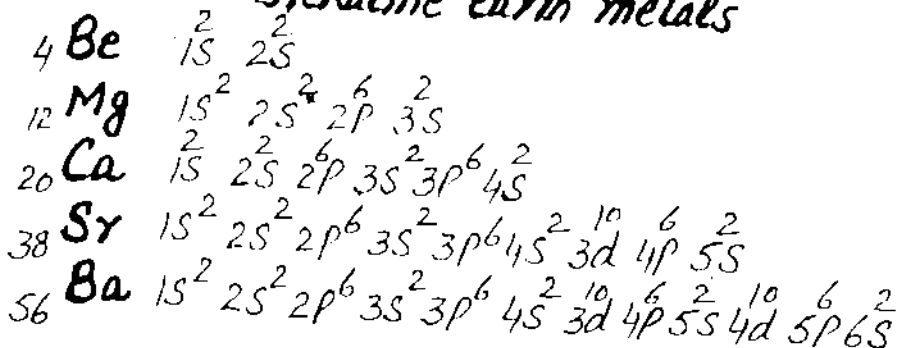 Alkaline earth metals
4 Be 1s² 2s²
12 Mg 1s² 2s² 2p⁶ 3s²
20 Ca 1s² 2s² 2p⁶ 3s² 3p⁶ 4s²
38 Sr 1s² 2s² 2p⁶ 3s² 3p⁶ 4s² 3d¹⁰ 4p⁶ 5s²
56 Ba 1s² 2s² 2p⁶ 3s² 3p⁶ 4s² 3d¹⁰ 4p⁶ 5s² 4d¹⁰ 5p⁶ 6s²